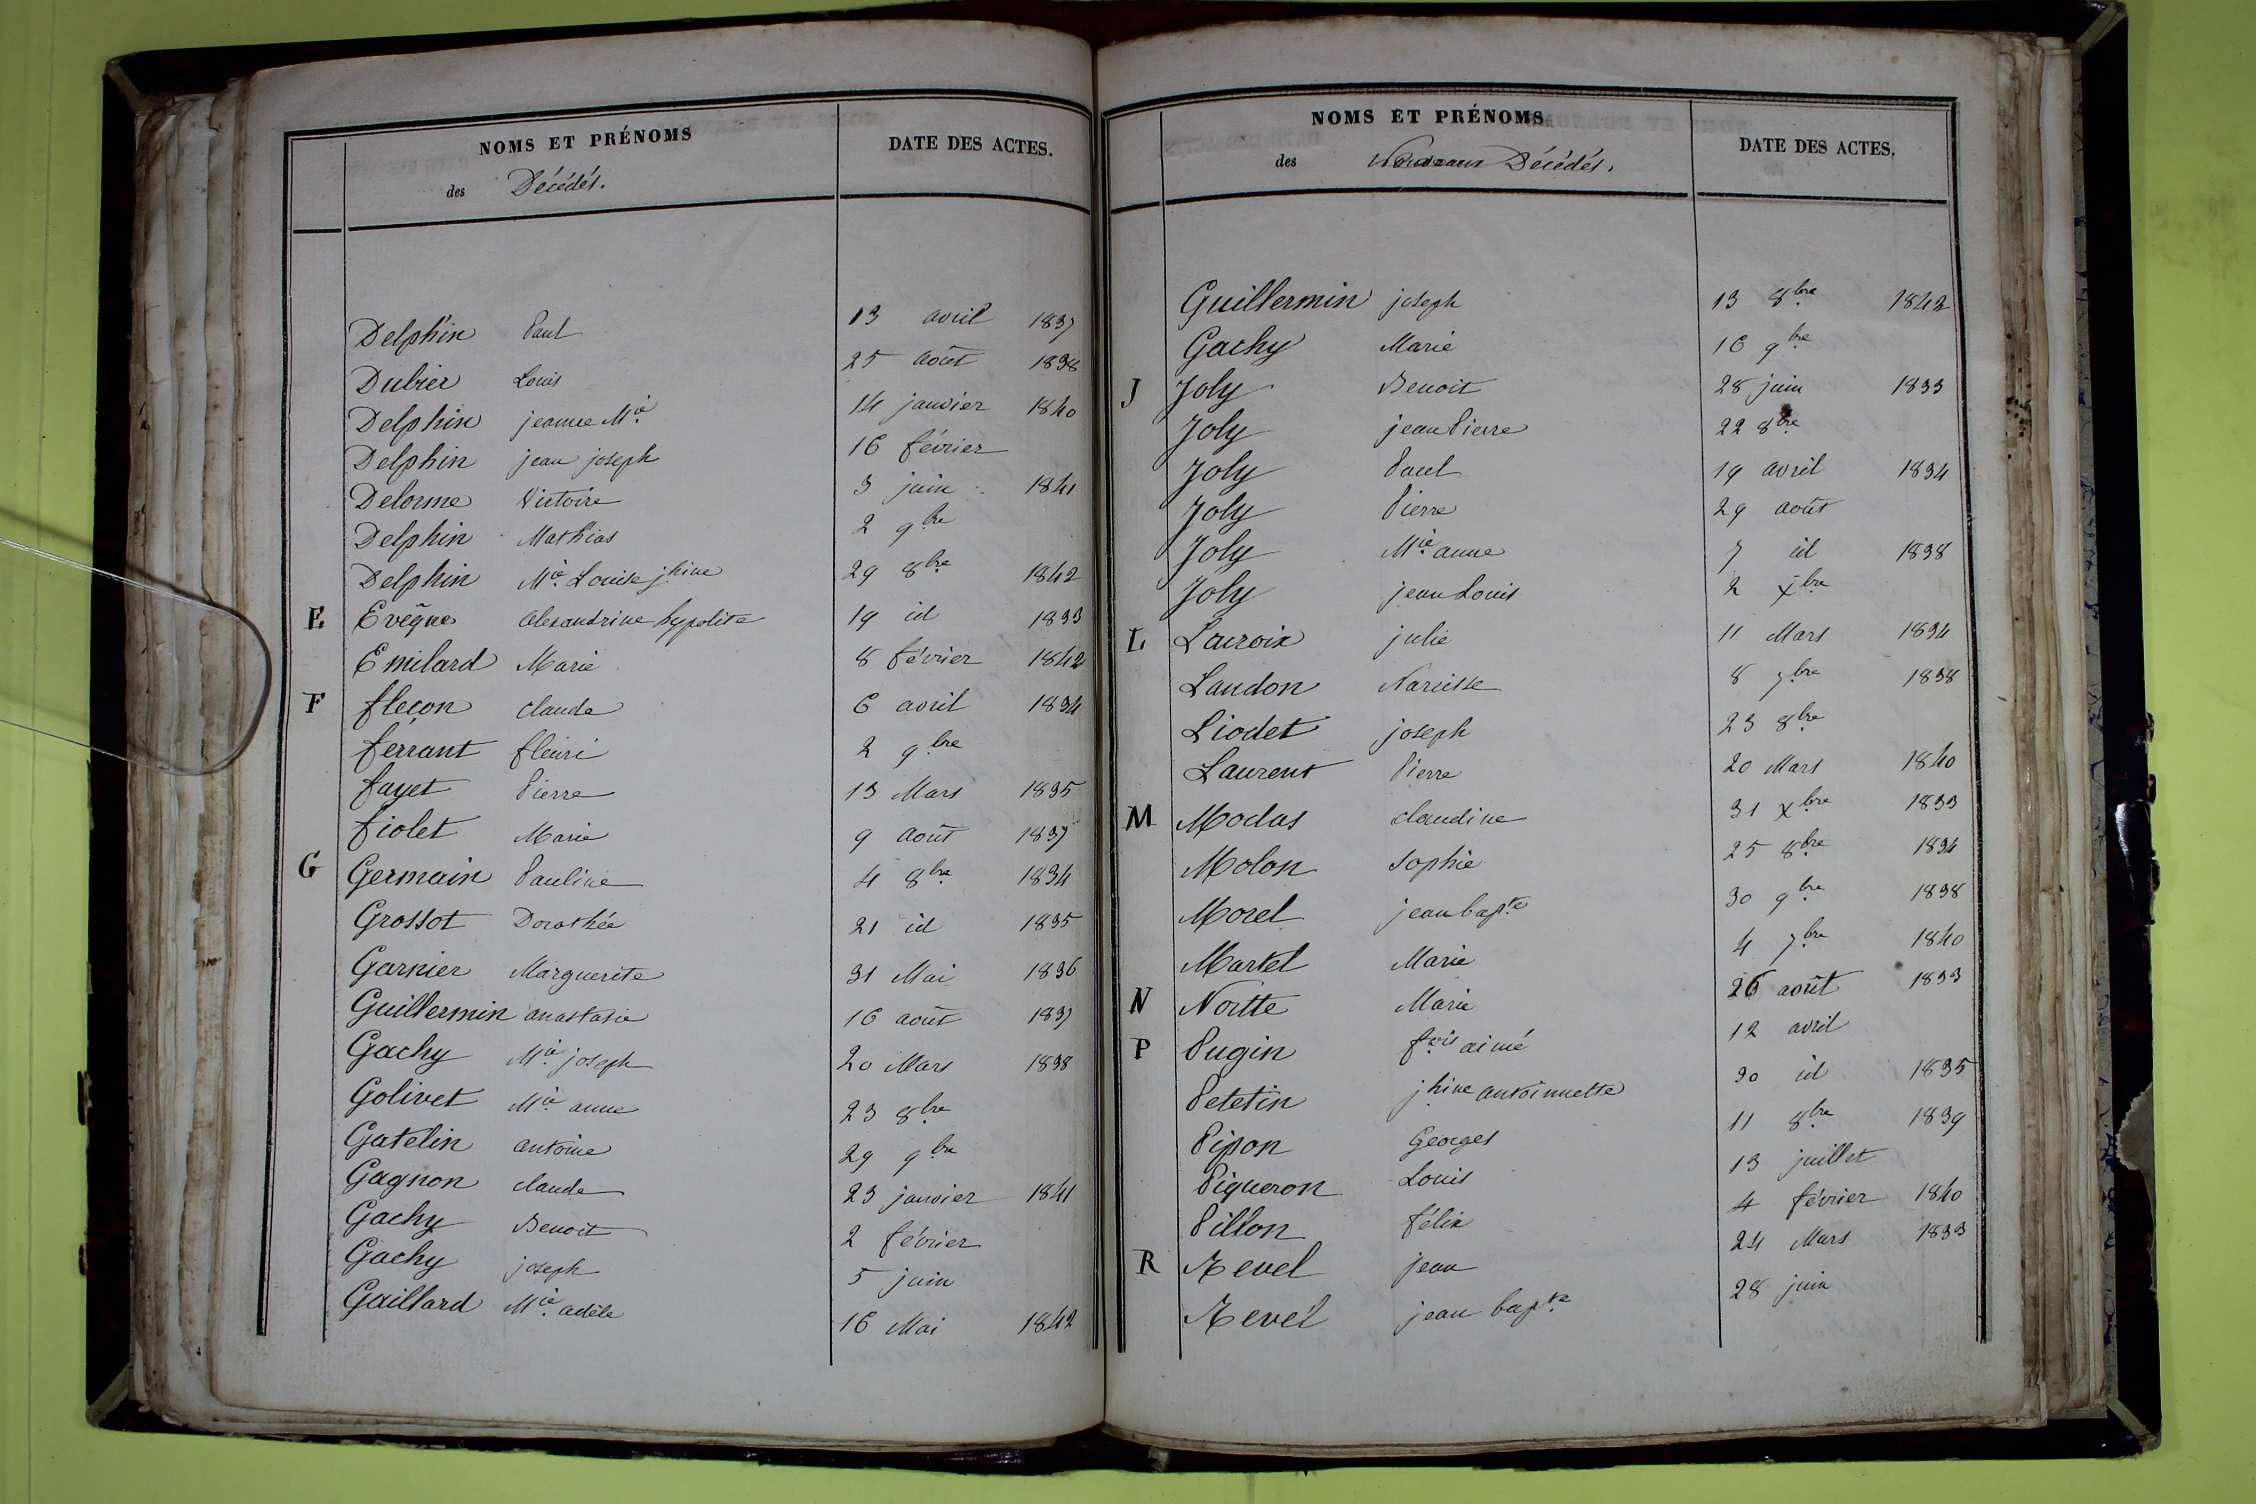 NOMS ET PRÉNOMS
DATE DES ACTES.
des Décédés.
Delphin Paul 13 avril 1837
Dubier Louis 25 août 1838
Delphin jeanne Mie 14 janvier 1840
Delphin jean joseph 16 février
Delorme Victoire 3 juin 1841
Delphin Mathias 2 9bre
Delphin Mie Louise jhine 29 8bre 1842
E Evêque alexandrine hypolite 19 id 1833
Emilard Marie 8 février 1842
F fleçon claude 6 avril 1834
ferrant fleuri 2 9bre
fayet Pierre 13 Mars 1835
fiolet Marie 9 août 1837
G Germain Pauline 4 8bre 1834
Grossot Dorothée 21 id 1835
Garnier Marguerite 31 Mai 1836
Guillermin anastasie 16 août 1837
Gachy Mie joseph 20 Mars 1838
Golivet Mie anne 23 8bre
Gatelin antoine 29 9bre
Gagnon claude 23 janvier 1841
Gachy Benoit 2 février
Gachy joseph 5 juin
Gaillard Mie adèle 16 Mai 1842
NOMS ET PRÉNOMS
DATE DES ACTES.
des Décédés.
Guillermin joseph 13 8bre 1842
Gachy Marie 16 9bre
J Joly Benoit 28 juin 1833
Joly jean Pierre 22 8bre
Joly Paul 19 avril 1834
Joly Pierre 29 août
Joly Mie anne 7 id 1838
Joly jean Louis 2 Xbre
L Lacroix julie 11 Mars 1834
Landon Narcisse 8 7bre 1838
Liodet joseph 23 8bre
Laurent Pierre 20 Mars 1840
M Modas claudine 31 Xbre 1833
Molon sophie 25 8bre 1834
Morel jean bapte 30 9bre 1838
Martel Marie 4 7bre 1840
N Nortte Marie 26 août 1833
P Pugin fois aimé 12 avril
Petetin jhine antoinnette 30 id 1835
Pipon Georges 11 8bre 1839
Piqueron Louis 13 juillet
Pillon félix 4 février 1840
R Revel jean 24 Mars 1833
Revel jean bapte 28 juin